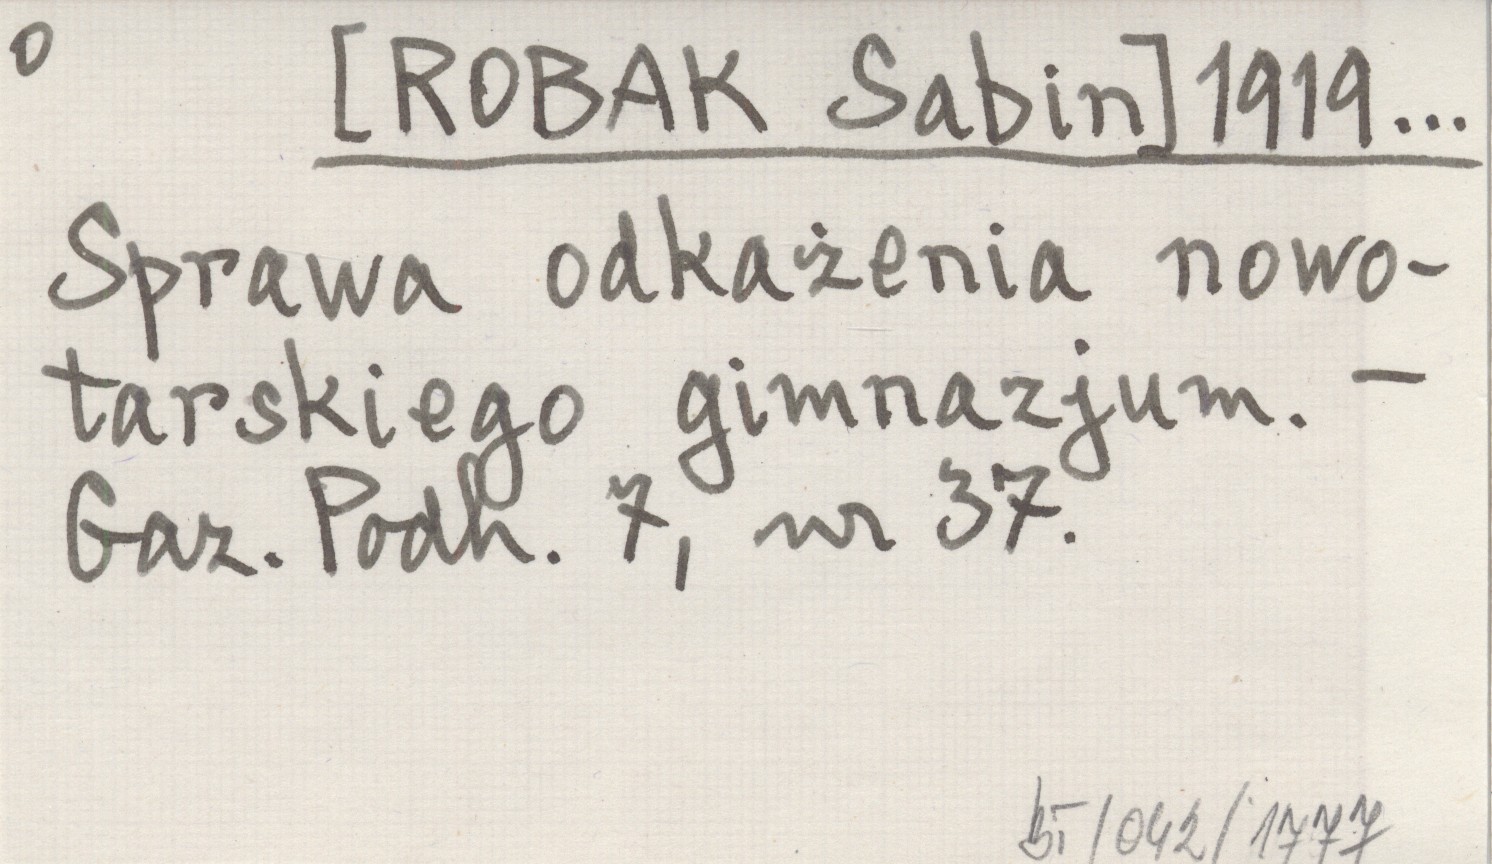 o [ROBAK Sabin] 1919...
Sprawa odkażenia nowo-
tarskiego gimnazjum. –
Gaz. Podh. 7, nr 37.
/042/1777